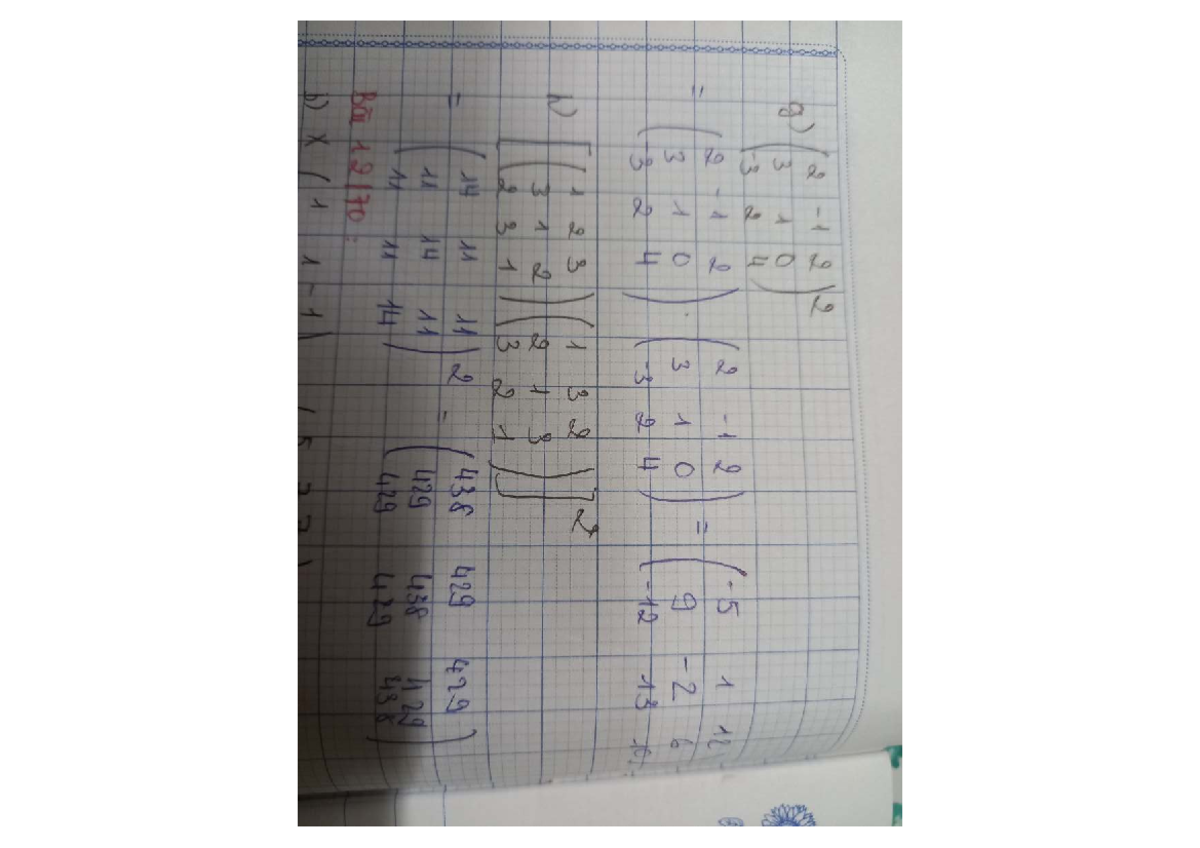 g) ( 2 -1 2
3 1 0
-3 2 4 ) 2
= ( 2 -1 2
3 1 0
-3 2 4 ) . ( 2 -1 2
3 1 0
-3 2 4 ) = ( -5 1 12
9 -2 6
-12 13
h) [ ( 1 2 3
3 1 2
2 3 1 ) ( 1 3 2
2 1 3
3 2 1 ) ] 2
= ( 14 11 11
11 14 11
11 11 14 ) 2 = ( 438 429 429
429 438 429
429 429 438 )
Bài 12/70 :
b) X ( 1 1 -1